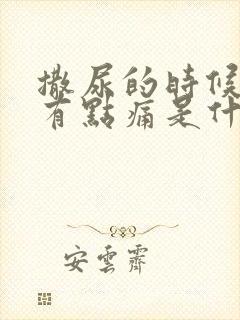 撒尿的時候
有點痛是什
安雲霽